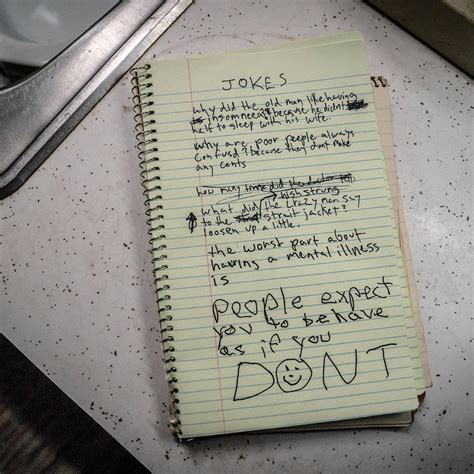 JOKES
why did the old man like having
insomneea? because he didnt
haff to sleep with his wife.
why are poor peeple always
confusd? because they dont make
any cents
how many did the doctor
high strung
what did the crazy man say
to the strait jacket?
loosen up a little.
the worst part about
having a mental illness
is
people expect
you to behave
as if you
DONT